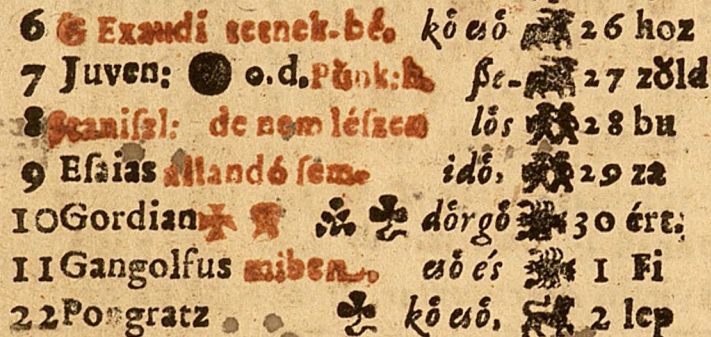 6 G Exaudi kő eső 26 hoz
7 Juven: o.d. Pünk: h. ſze- 27 zőld
8 Staniſzl: de nem léſzen lős 28 bu
9 Eſaias állandó ſem- idő, 29 za
10 Gordian dőrgő 30 ért:
11 Gangolfus miben eső és 1 Fi
22 Pongratz kő eső, 2 lep